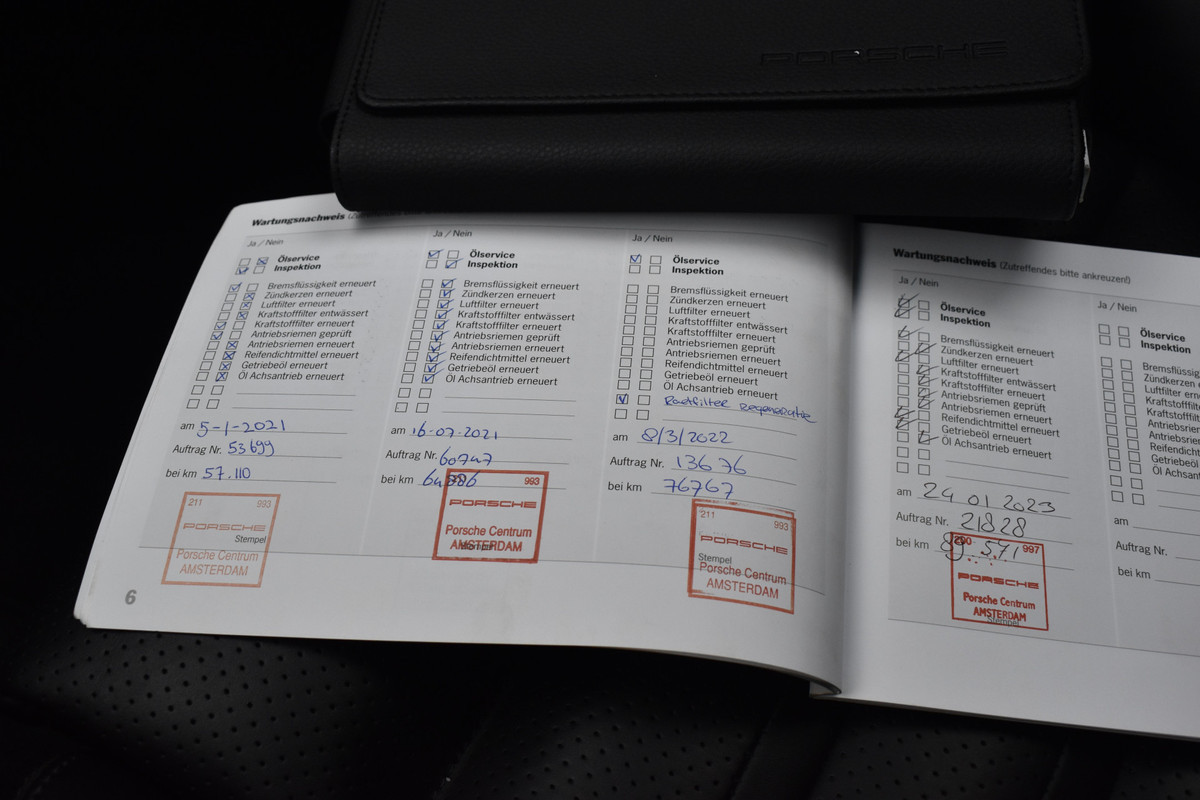 PORSCHE
Wartungsnachweis
Ja / Nein
Ölservice
Inspektion
Bremsflüssigkeit erneuert
Zündkerzen erneuert
Luftfilter erneuert
Kraftstofffilter entwässert
Kraftstofffilter erneuert
Antriebsriemen geprüft
Antriebsriemen erneuert
Reifendichtmittel erneuert
Getriebeöl erneuert
Öl Achsantrieb erneuert
am 5-1-2021
Auftrag Nr. 53699
bei km 57.110
211 993
PORSCHE
Stempel
Porsche Centrum
AMSTERDAM
6
Ja / Nein
Ölservice
Inspektion
Bremsflüssigkeit erneuert
Zündkerzen erneuert
Luftfilter erneuert
Kraftstofffilter entwässert
Kraftstofffilter erneuert
Antriebsriemen geprüft
Antriebsriemen erneuert
Reifendichtmittel erneuert
Getriebeöl erneuert
Öl Achsantrieb erneuert
am 16-07-2021
Auftrag Nr. 60747
bei km
993
PORSCHE
Porsche Centrum
AMSTERDAM
Ja / Nein
Ölservice
Inspektion
Bremsflüssigkeit erneuert
Zündkerzen erneuert
Luftfilter erneuert
Kraftstofffilter entwässert
Kraftstofffilter erneuert
Antriebsriemen geprüft
Antriebsriemen erneuert
Reifendichtmittel erneuert
Getriebeöl erneuert
Öl Achsantrieb erneuert
Roetfilter regeneratie
am 8/3/2022
Auftrag Nr. 13676
bei km 76767
211 993
PORSCHE
Stempel
Porsche Centrum
AMSTERDAM
Wartungsnachweis (Zutreffendes bitte ankreuzen!)
Ja / Nein
Ölservice
Inspektion
Bremsflüssigkeit erneuert
Zündkerzen erneuert
Luftfilter erneuert
Kraftstofffilter entwässert
Kraftstofffilter erneuert
Antriebsriemen geprüft
Antriebsriemen erneuert
Reifendichtmittel erneuert
Getriebeöl erneuert
Öl Achsantrieb erneuert
am 24 01 2023
Auftrag Nr. 21828
bei km 89 571
997
PORSCHE
Porsche Centrum
AMSTERDAM
Stempel
Ja / Nein
Ölservice
Inspektion
Bremsflüssig
Zündkerzen e
Luftfilter erne
Kraftstofffilte
Kraftstofffilte
Antriebsriem
Antriebsriem
Reifendichtm
Getriebeöl e
Öl Achsant
am
Auftrag Nr.
bei km